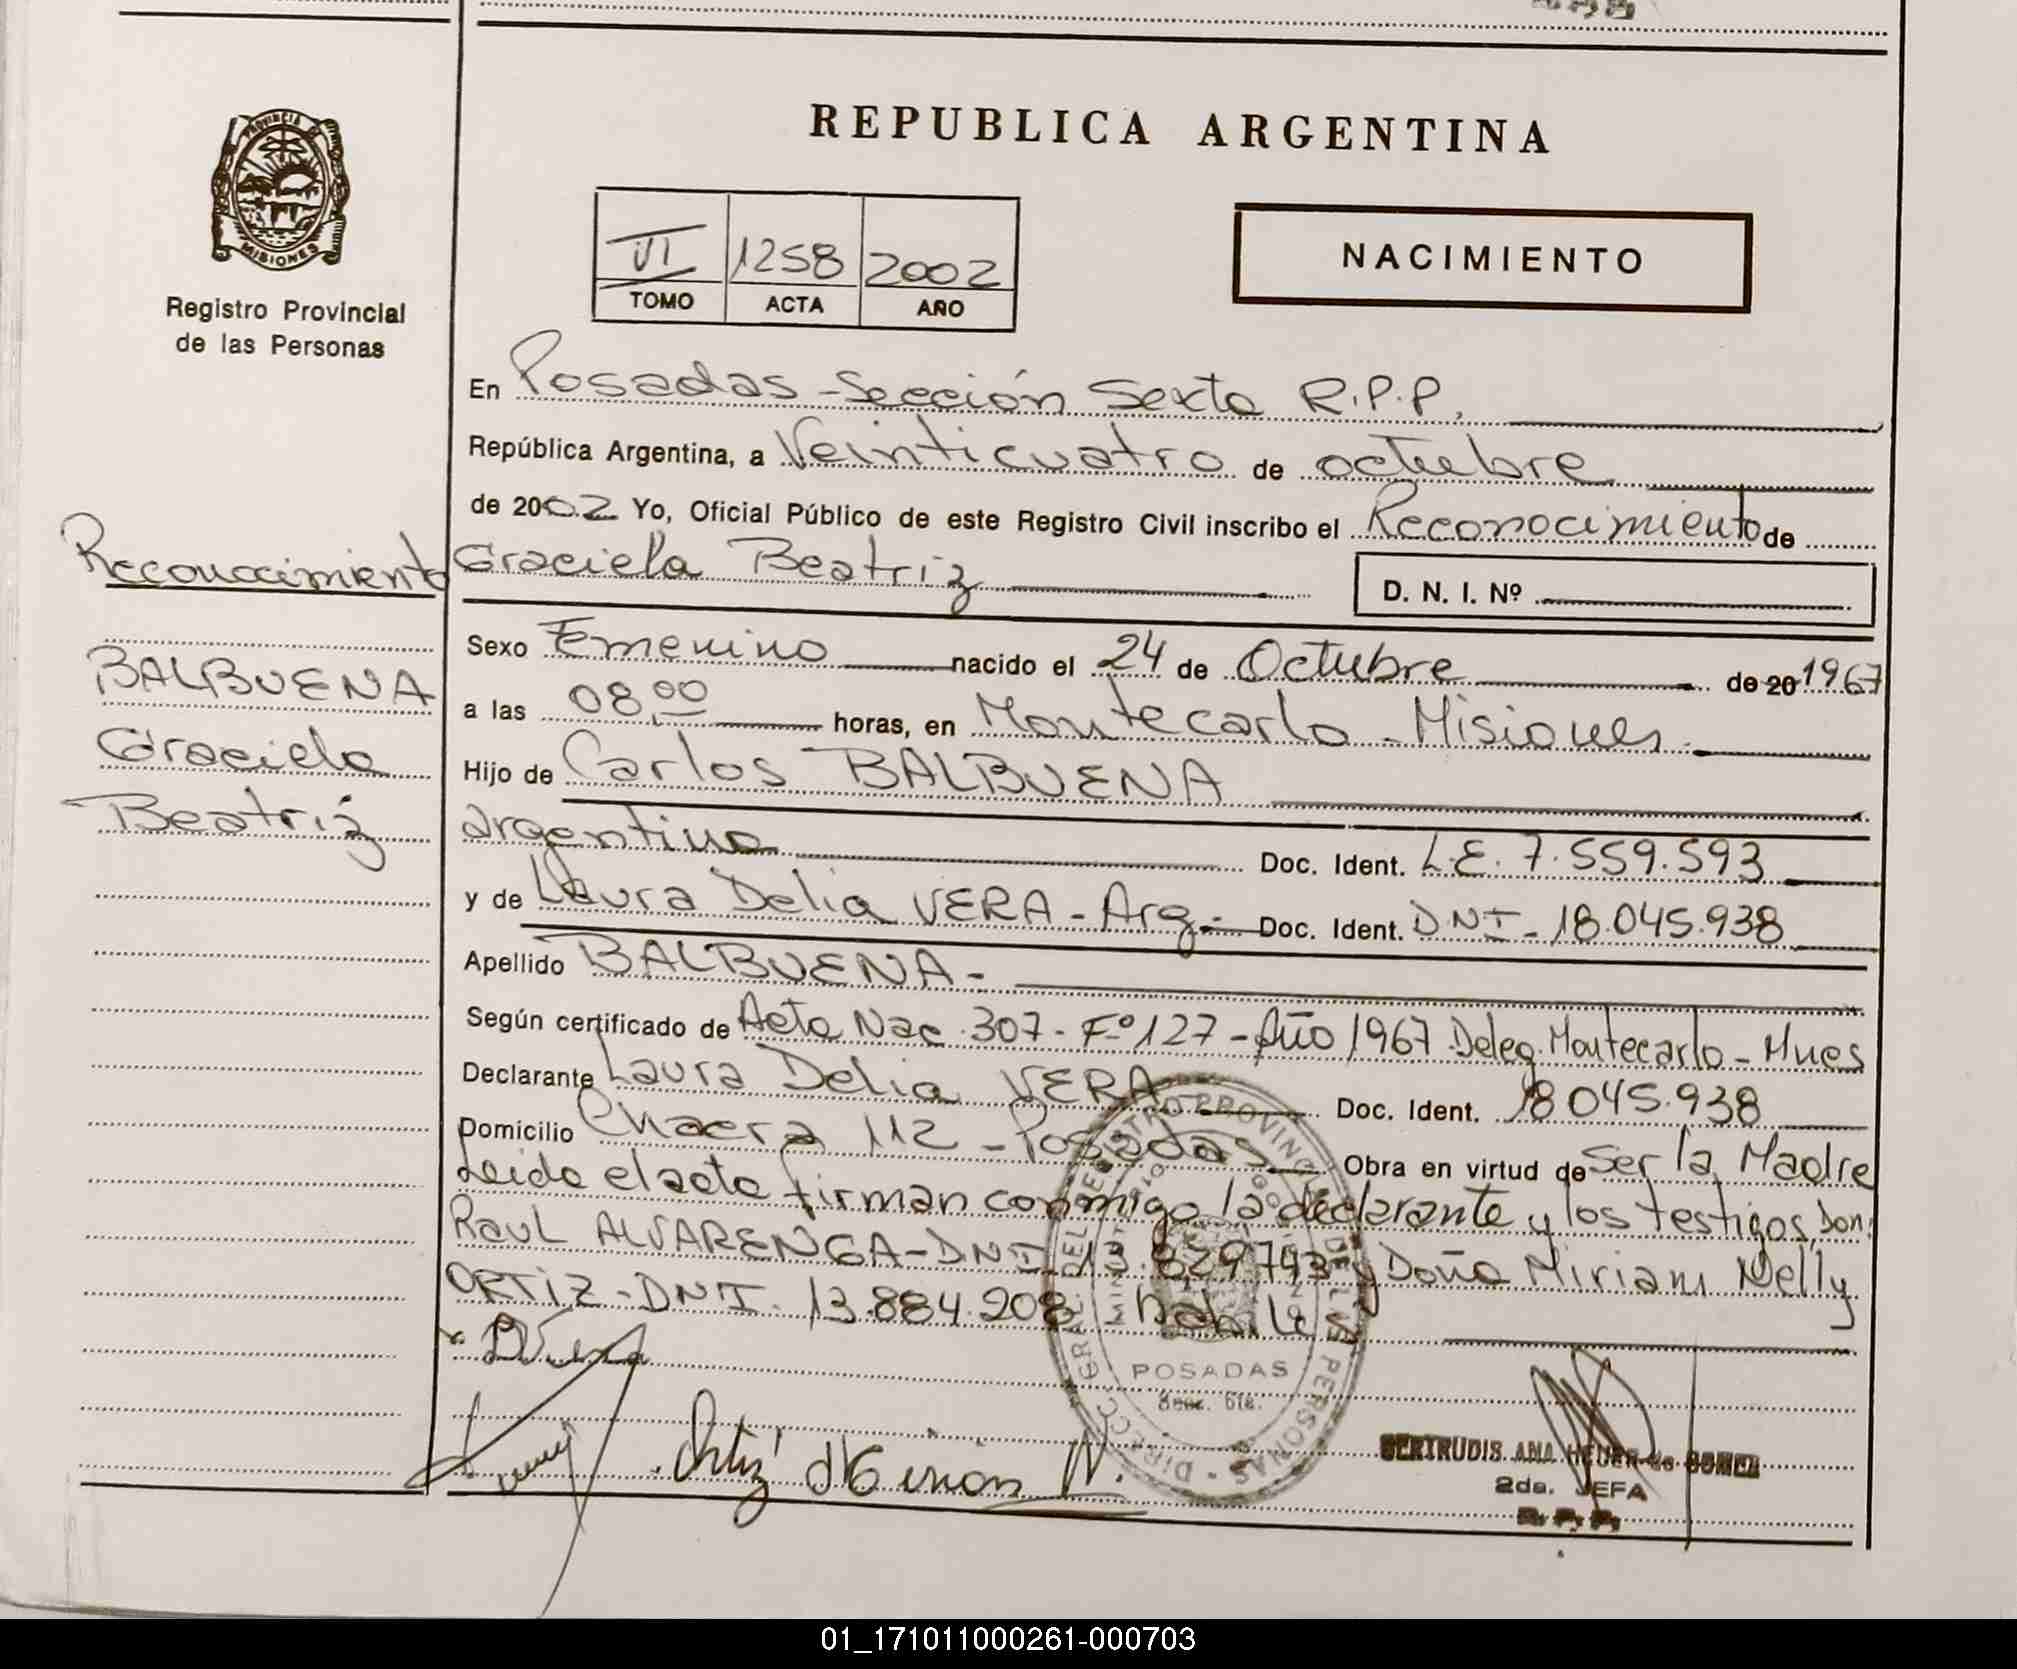 REPUBLICA ARGENTINA
PROVINCIA
MISIONES
Registro Provincial
de las Personas
VI 1258 2002
TOMO ACTA AÑO
NACIMIENTO
En Posadas - Sección Sexta R.P.P.
República Argentina, a Veinticuatro de octubre
de 2002 Yo, Oficial Público de este Registro Civil inscribo el Reconocimiento de
Graciela Beatriz D. N. I. Nº
Reconocimiento
BALBUENA
Graciela
Beatriz
Sexo Femenino nacido el 24 de Octubre de 20 1967
a las 08,00 horas, en Montecarlo - Misiones.
Hijo de Carlos BALBUENA
argentino Doc. Ident. L.E. 7.559.593
y de Laura Delia VERA - Arg. - Doc. Ident. DNI - 18.045.938
Apellido BALBUENA -
Según certificado de Acta Nac. 307 - Fº 127 - Año 1967 Deleg. Montecarlo - Mnes
Declarante Laura Delia VERA Doc. Ident. 18 045.938
Domicilio Chacra 112 - Posadas Obra en virtud de Ser la Madre
Leida el acta firman conmigo la declarante y los testigos, Don:
Raul ALVARENGA - DNI 13.829793 y Doña Miriam Nelly
ORTIZ - DNI. 13.884.208
DIRECC. GRAL. DEL REGISTRO PROVINCIAL DE LAS PERSONAS
POSADAS
Secc. 6ta.
Ortiz Miriam N.
GERTRUDIS ANA HEUER de GOMEZ
2da. JEFA
R. P. P.
01_171011000261-000703